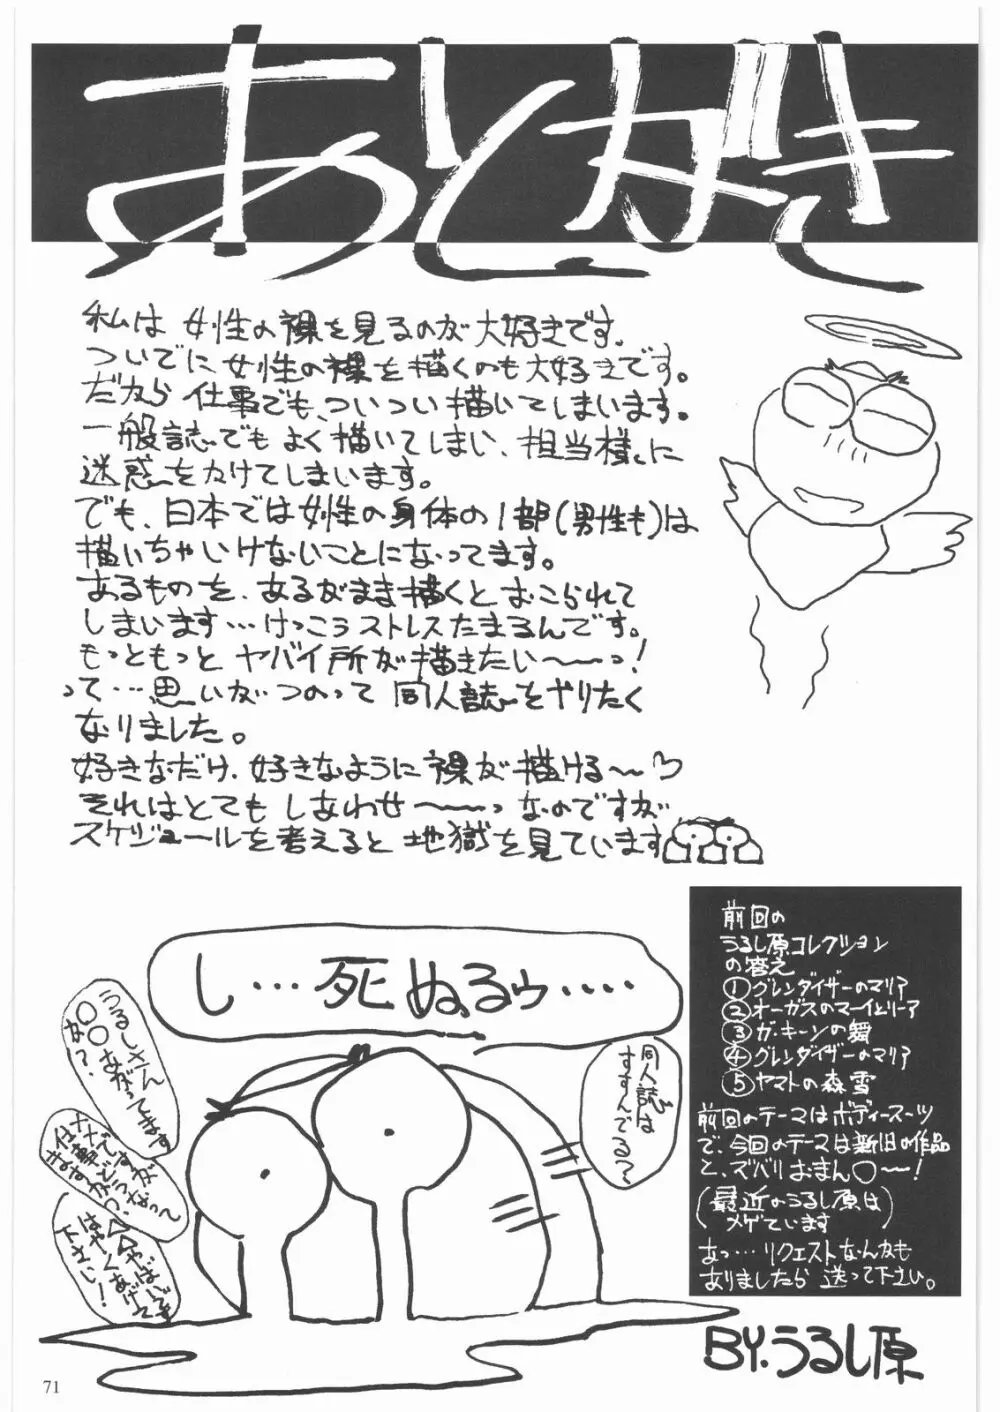 あとがき
私は女性の裸を見るのが大好きです。
ついでに女性の裸を描くのも大好きです。
だから仕事でも、ついつい描いてしまいます。
一般誌でもよく描いてしまい、担当様に
迷惑をかけてしまいます。
でも、日本では女性の身体の1部(男性も)は
描いちゃいけないことになってます。
あるものを、あるがまま描くとおこられて
しまいます…けっこうストレスたまるんです。
もっともっとヤバイ所が描きたい〜〜っ!
って…思いがつのって同人誌をやりたく
なりました。
好きなだけ、好きなように裸が描ける〜♡
それはとてもしあわせ〜〜っなのですが
スケジュールを考えると地獄を見ています
し…死ぬるゥ・・・・・
うるしさん
〇〇あがってます
か?
同人誌は
すすんでる?
はやく△△やばいです
あげて
下さい!
前回の
うるし原コレクション
の答え
①グレンダイザーのマリア
②オーガスのマーイとリーア
③ガ・キーンの舞
④グレンダイザーのマリア
⑤ヤマトの森雪
前回のテーマはボディースーツ
で、今回のテーマは新旧の作品
と、ズバリおまん〇〜!
(最近のうるし原は
メゲています)
あっ…リクエストなんかも
ありましたら送って下さい。
BY.うるし原
71